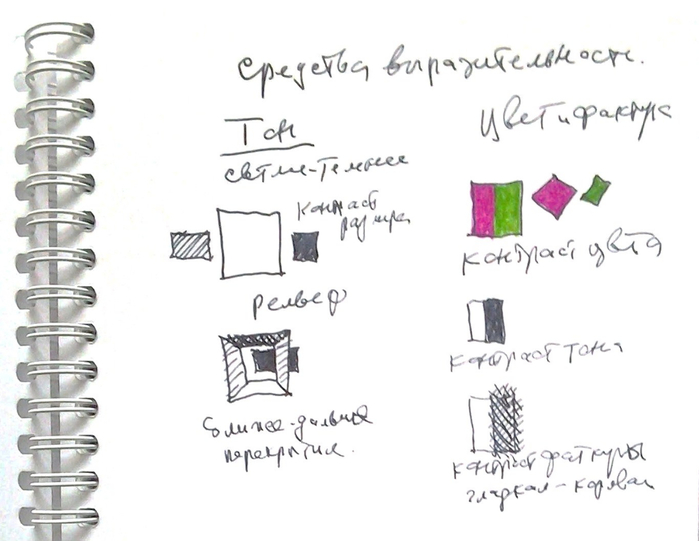 Средства выразительности.
Тон
светлее-темнее
контраст
размера
рельеф
ближе-дальше
перекрытие.
Цвет и фактура
контраст цвета
контраст тона
контраст фактуры
гладкая-корявая